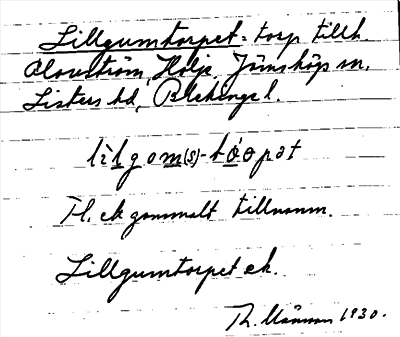 Lillgumtorpet = torp till h.
Olovström, Holje, Jämshögs sn,
Listers hd, Blekinge l.
lìlgom(s)-tǫ́rpət
Th. ek gammalt tillnamn.
Lillgumtorpet ek.
Th. 1930.